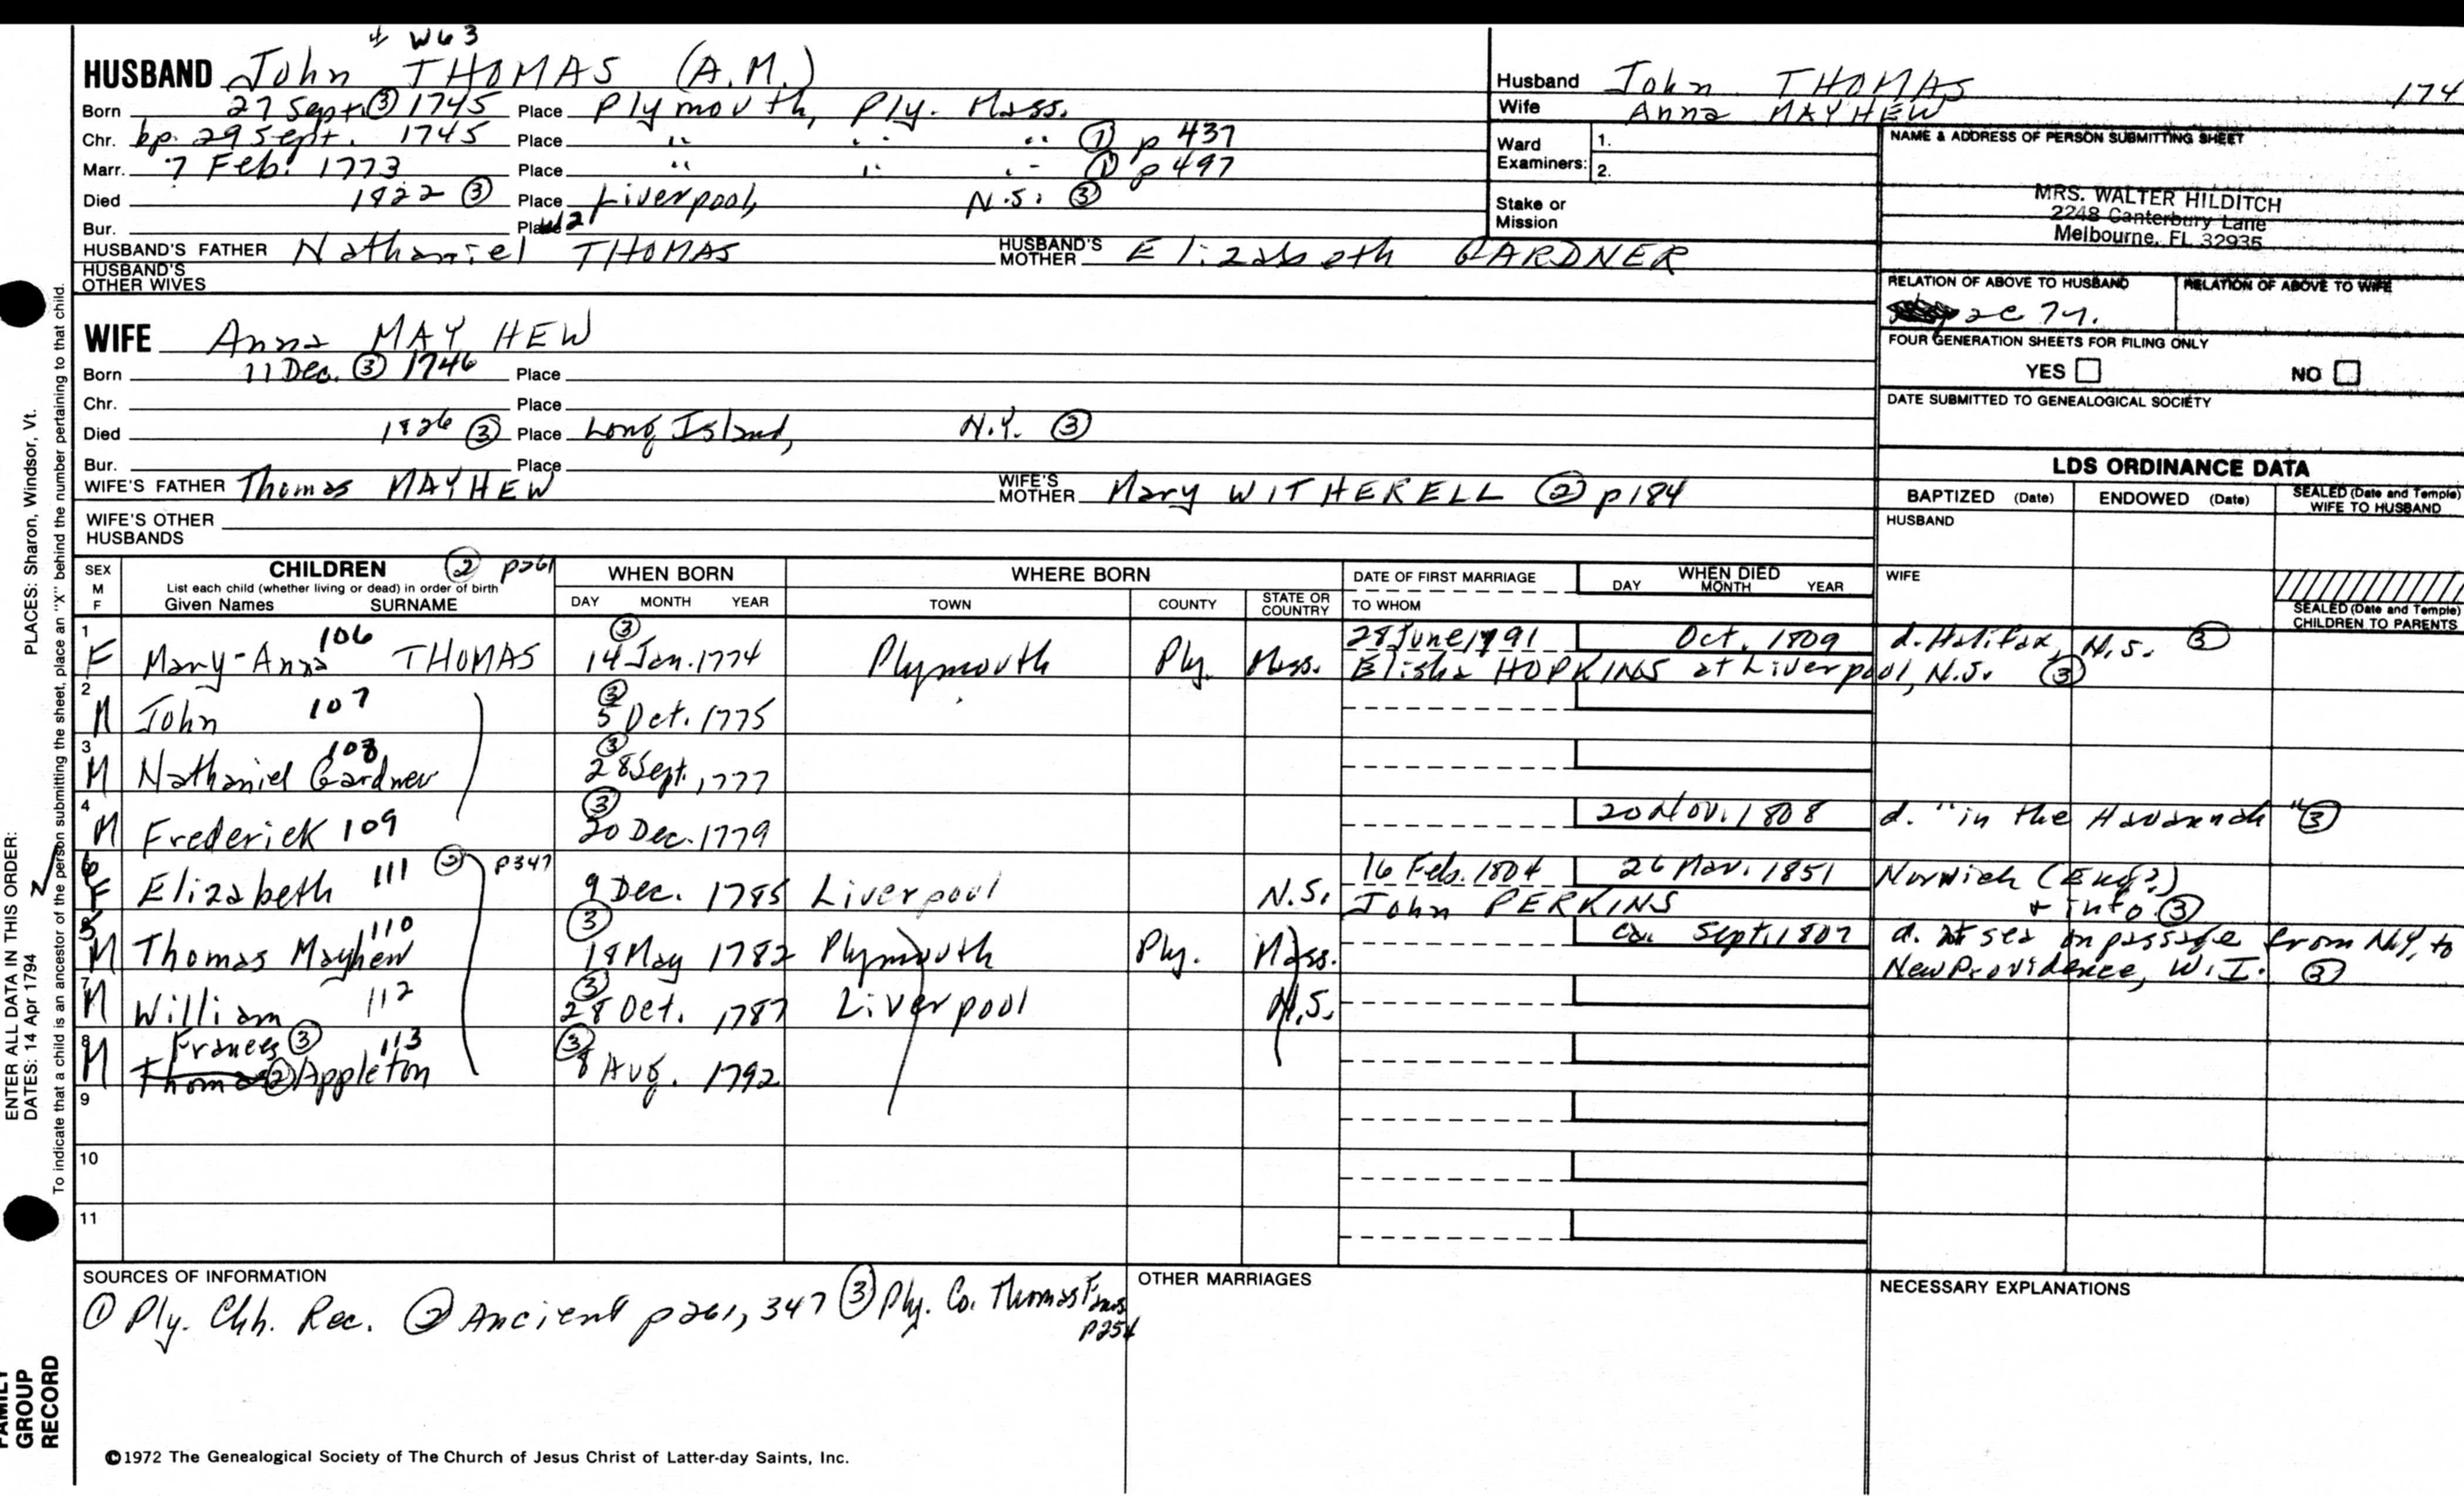 + W63
HUSBAND John THOMAS (A.M.)
Born 27 Sept. ③ 1745 Place Plymouth, Ply. Mass.
Chr. bp. 29 Sept. 1745 Place " " " ① p 437
Marr. 7 Feb. 1773 Place " " " ① p 497
Died 1822 ③ Place Liverpool, N.S. ③
Bur. Place
HUSBAND'S FATHER Nathaniel THOMAS HUSBAND'S MOTHER Elizabeth GARDNER
HUSBAND'S OTHER WIVES
Husband John THOMAS 174
Wife Anna MAYHEW
Ward Examiners: 1.
2.
Stake or Mission
NAME & ADDRESS OF PERSON SUBMITTING SHEET
MRS. WALTER HILDITCH
2248 Canterbury Lane
Melbourne, FL 32935
RELATION OF ABOVE TO HUSBAND RELATION OF ABOVE TO WIFE
FOUR GENERATION SHEETS FOR FILING ONLY
YES NO
DATE SUBMITTED TO GENEALOGICAL SOCIETY
WIFE Anna MAYHEW
Born 11 Dec. ③ 1746 Place
Chr. Place
Died 1826 ③ Place Long Island, N.Y. ③
Bur. Place
WIFE'S FATHER Thomas MAYHEW WIFE'S MOTHER Mary WITHERELL ② p184
WIFE'S OTHER HUSBANDS
LDS ORDINANCE DATA
BAPTIZED (Date) ENDOWED (Date) SEALED (Date and Temple) WIFE TO HUSBAND
HUSBAND
WIFE
SEALED (Date and Temple) CHILDREN TO PARENTS
SEX M F CHILDREN ② p261 WHEN BORN WHERE BORN DATE OF FIRST MARRIAGE WHEN DIED
List each child (whether living or dead) in order of birth
Given Names SURNAME DAY MONTH YEAR TOWN COUNTY STATE OR COUNTRY TO WHOM DAY MONTH YEAR
1 F Mary-Anna 106 THOMAS ③ 14 Jan. 1774 Plymouth Ply. Mass. 28 June 1791 Oct. 1809 d. Halifax, N.S. ③
Elisha HOPKINS at Liverpool, N.S. ③
2 M John 107 ③ 5 Oct. 1775
3 M Nathaniel Gardner 108 ③ 28 Sept. 1777
4 M Frederick 109 ③ 20 Dec. 1779 20 Nov. 1808 d. "in the Havannah" ③
6 F Elizabeth 111 ② p347 9 Dec. 1785 Liverpool N.S. 16 Feb. 1804 26 Mar. 1851 Norwich (Eng?)
John PERKINS + info. ③
5 M Thomas Mayhew 110 ③ 18 May 1782 Plymouth Ply. Mass. ca. Sept. 1807 d. at sea on passage from N.Y. to
New Providence, W.I. ③
7 M William 112 ③ 28 Oct. 1787 Liverpool N.S.
8 M Frances ③ 113
Thomas ② Appleton ③ 8 Aug. 1792
9
10
11
SOURCES OF INFORMATION
① Ply. Chh. Rec. ② Ancient p261, 347 ③ Ply. Co. Thomas Fams
p254
OTHER MARRIAGES
NECESSARY EXPLANATIONS
©1972 The Genealogical Society of The Church of Jesus Christ of Latter-day Saints, Inc.
ENTER ALL DATA IN THIS ORDER:
DATES: 14 Apr 1794 PLACES: Sharon, Windsor, Vt.
To indicate that a child is an ancestor of the person submitting the sheet, place an "X" behind the number pertaining to that child.
FAMILY
GROUP
RECORD